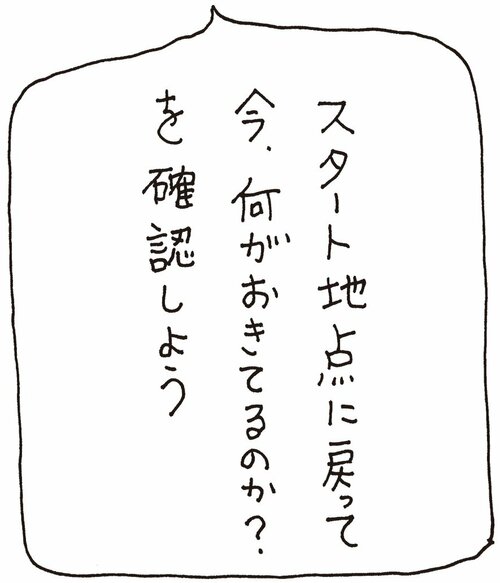 スタート地点に戻って
今、何がおきてるのか?
を確認しよう